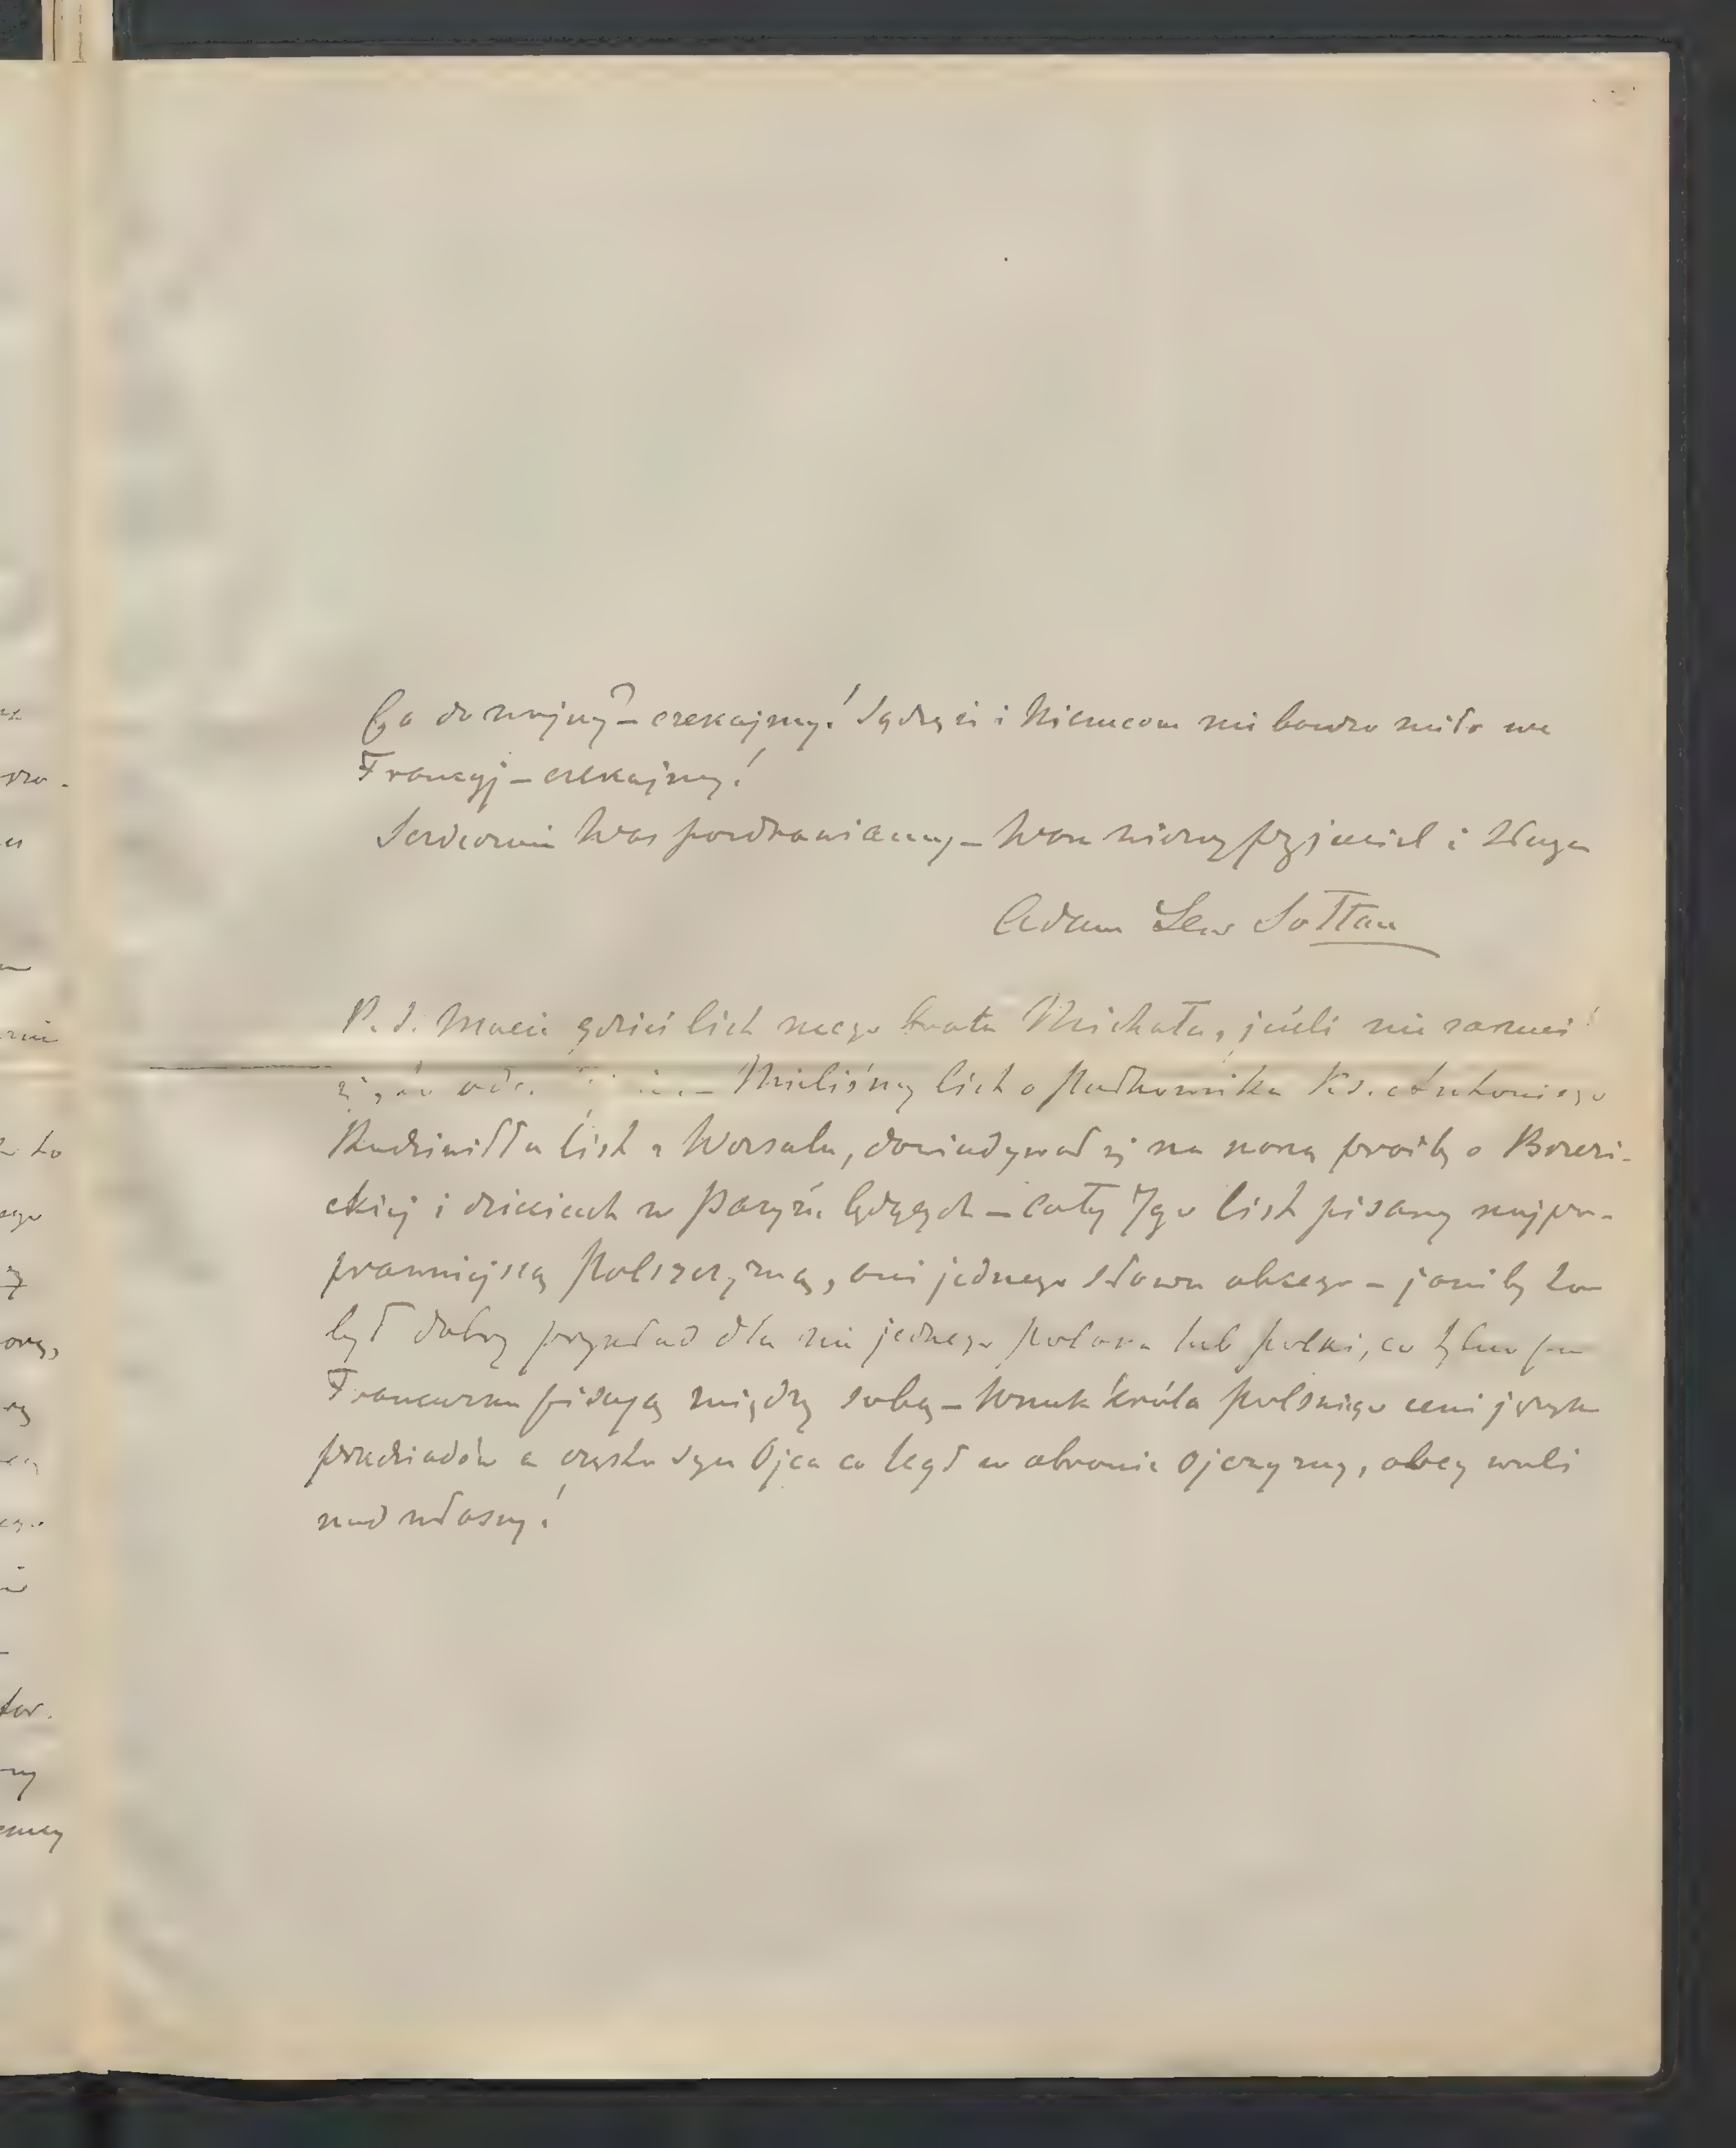 Co do wojny? – czekajmy! Sądzę iż i Niemcom nie bardzo miło we
Francyj – czekajmy!
Serdecznie Was pozdrawiamy – Wasz wierny przyjaciel i sługa
Adam Lew Sołtan
P. S. Macie gdzieś list mego brata Michała, jeśli nie zarzuci
Mieliśmy list o Pułkownika Ks. Antoniego
Radziwiłła list z Wersalu, dowiadywał się na naszą prośbę o Brzezi-
ckiej i dzieciach w Paryżu będących – cały Jego list pisany najpo-
prawniejszą Polszczyzną, ani jednego słowa obcego – jakiby to
był dobry przykład dla nie jednego Polaka lub Polki, co tylko po
Francuzku pisają między sobą – Wnuk króla Polskiego ceni język
pradziadów a często syn Ojca co legł w obronie Ojczyzny, obcy woli
nad własny!